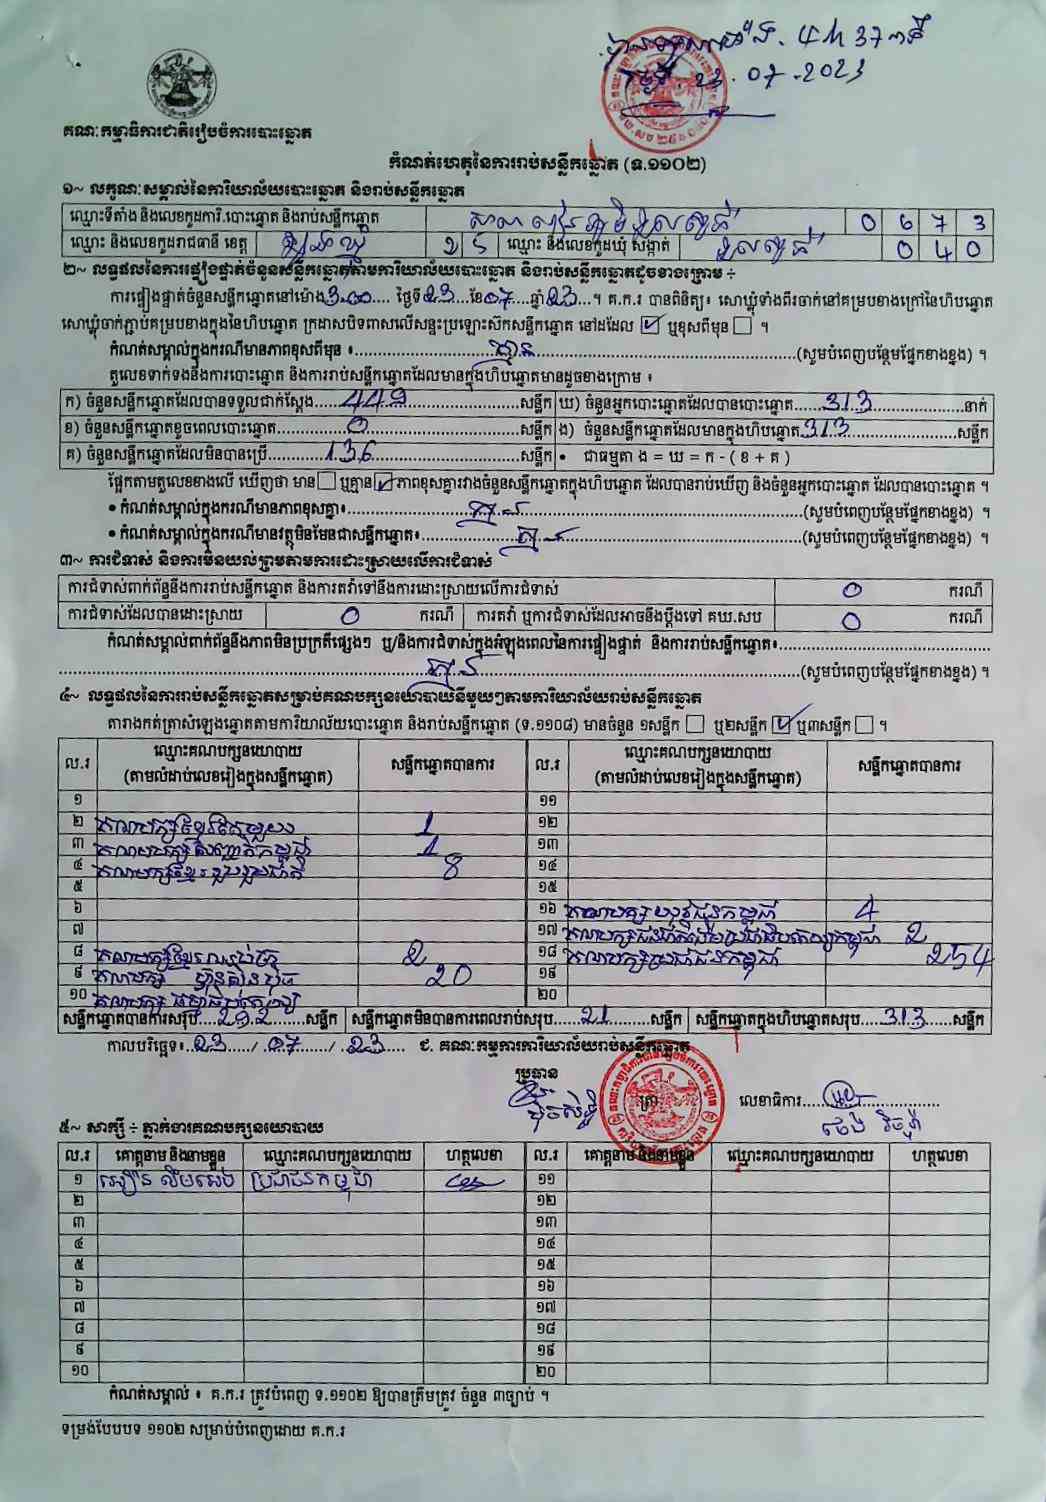 4h 37 នាទី
23.07.2023
គណៈកម្មាធិការជាតិរៀបចំការបោះឆ្នោត
កំណត់ហេតុនៃការរាប់សន្លឹកឆ្នោត (ទ.១១០២)
១~ លក្ខណៈសម្គាល់នៃការិយាល័យបោះឆ្នោត និងរាប់សន្លឹកឆ្នោត
ឈ្មោះទីតាំង និងលេខកូដការិ.បោះឆ្នោត និងរាប់សន្លឹកឆ្នោត 0 6 7 3
ឈ្មោះ និងលេខកូដរាជធានី ខេត្ត 1 5 ឈ្មោះ និងលេខកូដឃុំ សង្កាត់ 0 4 0
២~ លទ្ធផលនៃការផ្ទៀងផ្ទាត់ចំនួនសន្លឹកឆ្នោតតាមការិយាល័យបោះឆ្នោត និងរាប់សន្លឹកឆ្នោតដូចខាងក្រោម ÷
ការផ្ទៀងផ្ទាត់ចំនួនសន្លឹកឆ្នោតនៅម៉ោង 3.00 ថ្ងៃទី 23 ខែ 07 ឆ្នាំ 23 ។ គ.ក.រ បានពិនិត្យ៖ សោឃ្លុំទាំងពីរចាក់នៅគម្របខាងក្រៅនៃហិបឆ្នោត
សោឃ្លុំចាក់ភ្ជាប់គម្របខាងក្នុងនៃហិបឆ្នោត ក្រដាសបិទពាសលើសន្ទះប្រឡោះស៊កសន្លឹកឆ្នោត នៅដដែល ☑ ឬខុសពីមុន ☐ ។
កំណត់សម្គាល់ក្នុងករណីមានភាពខុសពីមុន ៖ គ្មាន (សូមបំពេញបន្ថែមផ្នែកខាងខ្នង) ។
តួលេខទាក់ទងនឹងការបោះឆ្នោត និងការរាប់សន្លឹកឆ្នោតដែលមានក្នុងហិបឆ្នោតមានដូចខាងក្រោម ៖
ក) ចំនួនសន្លឹកឆ្នោតដែលបានទទួលជាក់ស្តែង 449 សន្លឹក ឃ) ចំនួនអ្នកបោះឆ្នោតដែលបានបោះឆ្នោត 313 នាក់
ខ) ចំនួនសន្លឹកឆ្នោតខូចពេលបោះឆ្នោត 0 សន្លឹក ង) ចំនួនសន្លឹកឆ្នោតដែលមានក្នុងហិបឆ្នោត 313 សន្លឹក
គ) ចំនួនសន្លឹកឆ្នោតដែលមិនបានប្រើ 136 សន្លឹក • ជាធម្មតា ង = ឃ = ក - ( ខ + គ )
ផ្អែកតាមតួលេខខាងលើ ឃើញថា មាន ☐ ឬគ្មាន ☑ ភាពខុសគ្នារវាងចំនួនសន្លឹកឆ្នោតក្នុងហិបឆ្នោត ដែលបានរាប់ឃើញ និងចំនួនអ្នកបោះឆ្នោត ដែលបានបោះឆ្នោត ។
• កំណត់សម្គាល់ក្នុងករណីមានភាពខុសគ្នា៖ គ្មាន (សូមបំពេញបន្ថែមផ្នែកខាងខ្នង) ។
• កំណត់សម្គាល់ក្នុងករណីមានវត្ថុមិនមែនជាសន្លឹកឆ្នោត៖ គ្មាន (សូមបំពេញបន្ថែមផ្នែកខាងខ្នង) ។
៣~ ការជំទាស់ និងការមិនយល់ព្រមតាមការដោះស្រាយលើការជំទាស់
ការជំទាស់ពាក់ព័ន្ធនឹងការរាប់សន្លឹកឆ្នោត និងការតវ៉ាទៅនឹងការដោះស្រាយលើការជំទាស់ 0 ករណី
ការជំទាស់ដែលបានដោះស្រាយ 0 ករណី ការតវ៉ា ឬការជំទាស់ដែលអាចនឹងប្តឹងទៅ គឃ.សប 0 ករណី
កំណត់សម្គាល់ពាក់ព័ន្ធនឹងភាពមិនប្រក្រតីផ្សេងៗ ឬ/និងការជំទាស់ក្នុងអំឡុងពេលនៃការផ្ទៀងផ្ទាត់ និងការរាប់សន្លឹកឆ្នោត៖
គ្មាន (សូមបំពេញបន្ថែមផ្នែកខាងខ្នង) ។
៤~ លទ្ធផលនៃការរាប់សន្លឹកឆ្នោតសម្រាប់គណបក្សនយោបាយនីមួយៗតាមការិយាល័យរាប់សន្លឹកឆ្នោត
តារាងកត់ត្រាសំឡេងឆ្នោតតាមការិយាល័យបោះឆ្នោត និងរាប់សន្លឹកឆ្នោត (ទ.១១០៨) មានចំនួន ១សន្លឹក ☐ ឬ២សន្លឹក ☑ ឬ៣សន្លឹក ☐ ។
ល.រ ឈ្មោះគណបក្សនយោបាយ (តាមលំដាប់លេខរៀងក្នុងសន្លឹកឆ្នោត) សន្លឹកឆ្នោតបានការ ល.រ ឈ្មោះគណបក្សនយោបាយ (តាមលំដាប់លេខរៀងក្នុងសន្លឹកឆ្នោត) សន្លឹកឆ្នោតបានការ
១ ១១
២ គណបក្សខ្មែរតែមួយ 1 ១២
៣ 1 ១៣
៤ គណបក្សខ្មែររួបរួមជាតិ 8 ១៤
៥ ១៥
៦ ១៦ 4
៧ ១៧ 2
៨ 2 ១៨ គណបក្សប្រជាជនកម្ពុជា 254
៩ គណបក្ស ហ៊្វុនស៊ិនប៉ិច 20 ១៩
១០ គណបក្ស ធម្មាធិបតេយ្យ ២០
សន្លឹកឆ្នោតបានការសរុប 292 សន្លឹក សន្លឹកឆ្នោតមិនបានការពេលរាប់សរុប 21 សន្លឹក សន្លឹកឆ្នោតក្នុងហិបឆ្នោតសរុប 313 សន្លឹក
កាលបរិច្ឆេទ៖ 23 / 07 / 23 ជ. គណៈកម្មការការិយាល័យរាប់សន្លឹកឆ្នោត
ប្រធាន
ត្រា លេខាធិការ
៥~ សាក្សី ÷ ភ្នាក់ងារគណបក្សនយោបាយ
ល.រ គោត្តនាម និងនាមខ្លួន ឈ្មោះគណបក្សនយោបាយ ហត្ថលេខា ល.រ គោត្តនាម និងនាមខ្លួន ឈ្មោះគណបក្សនយោបាយ ហត្ថលេខា
១ ប្រជាជនកម្ពុជា ១១
២ ១២
៣ ១៣
៤ ១៤
៥ ១៥
៦ ១៦
៧ ១៧
៨ ១៨
៩ ១៩
១០ ២០
កំណត់សម្គាល់ ៖ គ.ក.រ ត្រូវបំពេញ ទ.១១០២ ឱ្យបានត្រឹមត្រូវ ចំនួន ៣ច្បាប់ ។
ទម្រង់បែបបទ ១១០២ សម្រាប់បំពេញដោយ គ.ក.រ